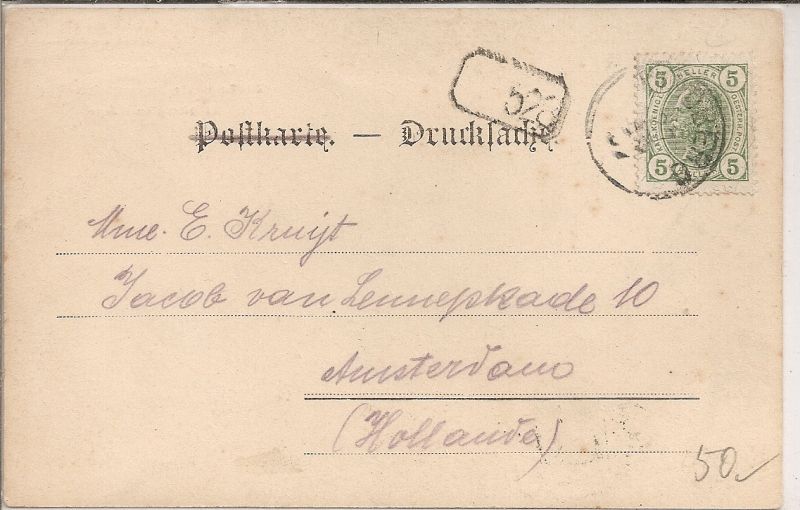 5 HELLER 5
5 HELLER 5
528
Postkarte. — Drucksache.
Mme. E. Kruijt
Jacob van Lennepkade 10
Amsterdam
(Hollande)
50